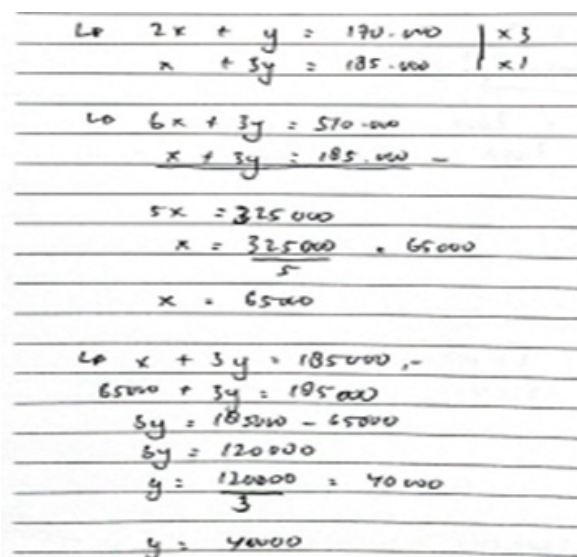 ↳ 2x + y = 170.000 | x 3
x + 3y = 185.000 | x 1
↳ 6x + 3y = 510.000
x + 3y = 185.000 -
5x = 325000
x = 325000/5 = 65000
x = 65000
↳ x + 3y = 185000,-
65000 + 3y = 185000
3y = 185000 - 65000
3y = 120000
y = 120000/3 = 40000
y = 40000